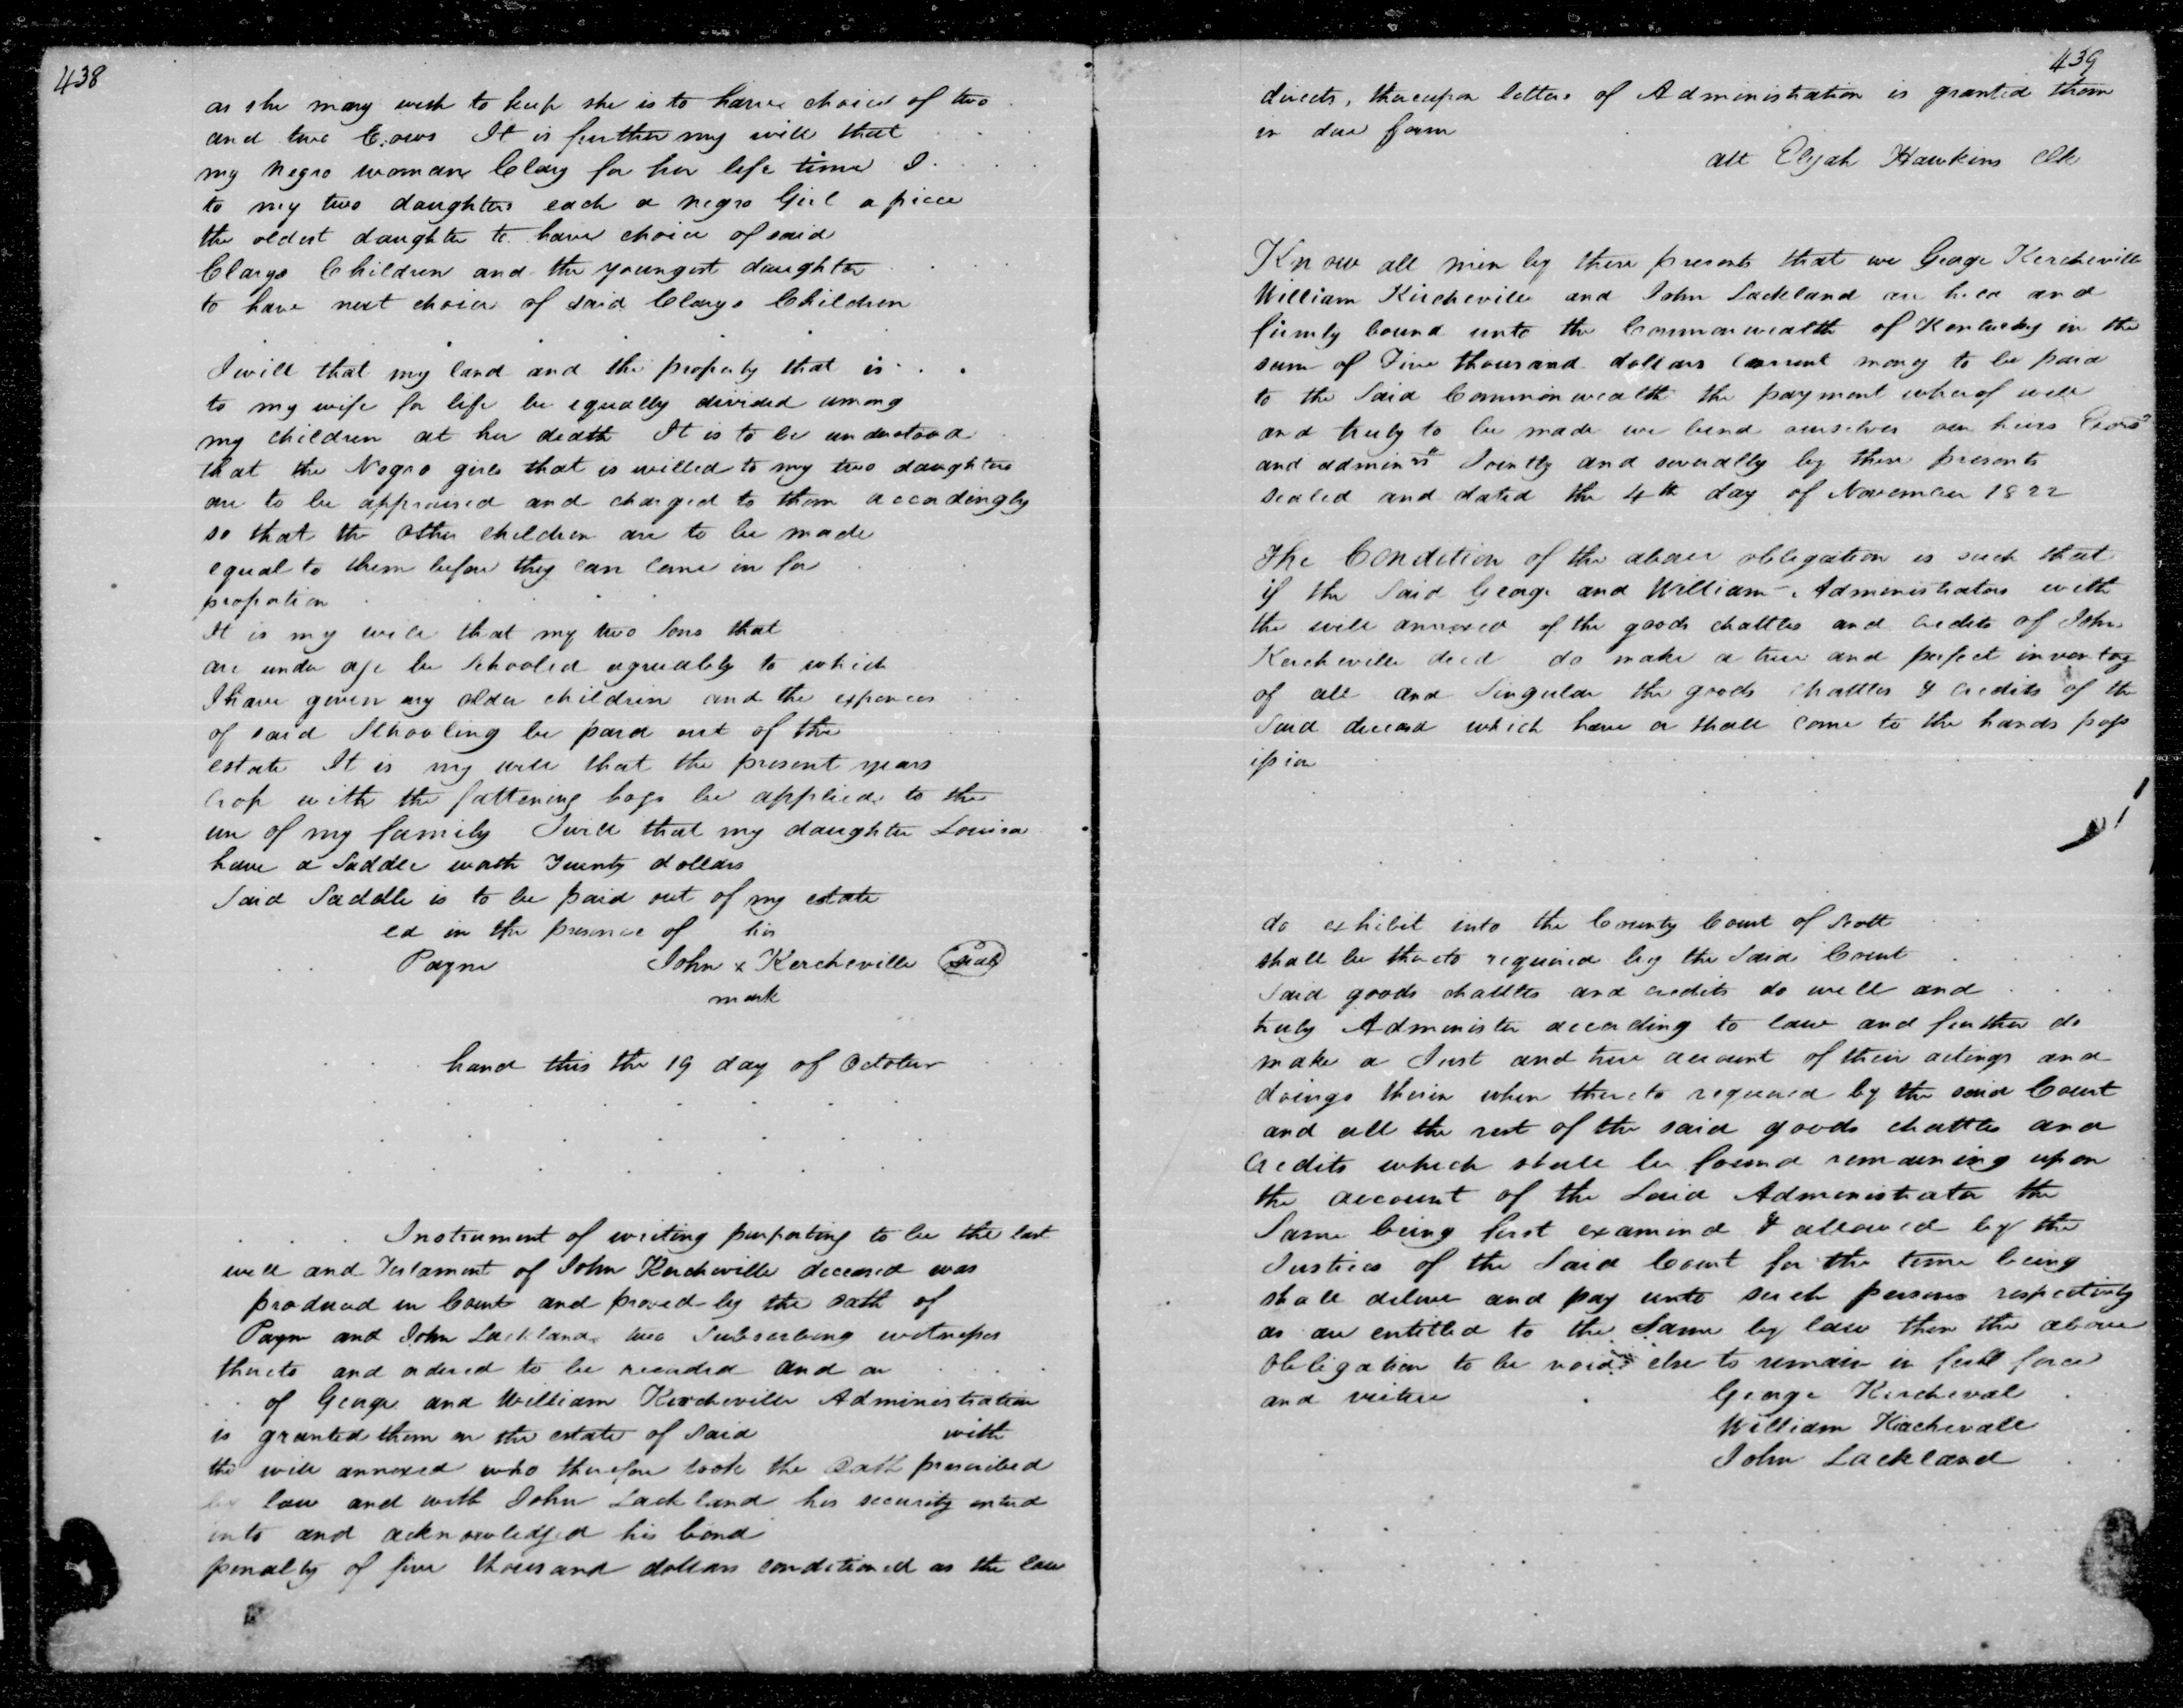 438
as she may wish to keep she is to have choice of two
and two Cows It is further my will that
my negro woman Clary for her life time I
to my two daughters each a negro Girl a piece
the oldest daughter to have choice of said
Clarys Children and the youngest daughter
to have next choice of said Clarys Children
I will that my land and the property that is
to my wife for life be equally divided among
my children at her death It is to be understood
that the Negro girls that is willed to my two daughters
are to be appraised and charged to them accordingly
so that the other children are to be made
equal to them before they can come in for
proportion
It is my will that my two Sons that
are under age be Schooled agreeably to which
I have given my older children and the expences
of said Schooling be paid out of the
estate It is my will that the present years
crop with the fattening hogs be applied to the
use of my family I will that my daughter Louisa
have a Saddle worth Twenty dollars
Said Saddle is to be paid out of my estate
ed in the presence of his
Payne John x Kercheville Seal
mark
hand this the 19 day of October
Instrument of writing purporting to be the last
will and Testament of John Kercheville deceased was
produced in Court and proved by the oath of
Payn and John Lackland two Subscribing witnesses
thereto and ordered to be recorded and on
of George and William Kercheville Administration
is granted them on the estate of Said with
the will annexed who therefore took the oath prescribed
by law and with John Lackland his security enterd
into and acknowledged his bond
penalty of five thousand dollars conditioned as the law
439
directs, thereupon letters of Administration is granted them
in due form
att Elijah Hawkins Clk
Know all men by these presents that we George Kercheville
William Kircheville and John Lackland are held and
firmly bound unto the Commonwealth of Kentucky in the
sum of Five thousand dollars Current money to be paid
to the Said Commonwealth the payment whereof well
and truly to be made we bind ourselves our heirs Exors
and adminrs Jointly and severally by these presents
sealed and dated the 4th day of November 1822
The Condition of the above obligation is such that
if the Said George and William Administrators with
the will annexed of the goods chattles and credits of John
Kercheville decd do make a true and perfect inventory
of all and Singular the goods chattles & credits of the
Said deceasd which have or shall come to the hands poss
ission
do exhibit into the County Court of Scott
shall be thereto required by the Said Court
Said goods chattles and credits do well and
truly Administer according to law and further do
make a Just and true account of their actings and
doings therein when thereto required by the said Court
and all the rest of the said goods chattles and
Credits which shall be found remaining upon
the account of the Said Administrator the
Same being first examind & allowed by the
Justices of the Said Court for the time being
shall deliver and pay unto such persons respectively
as are entitled to the Same by law then the above
Obligation to be void else to remain in full force
and virtue George Kercheval
William Kerchevall
John Lackland